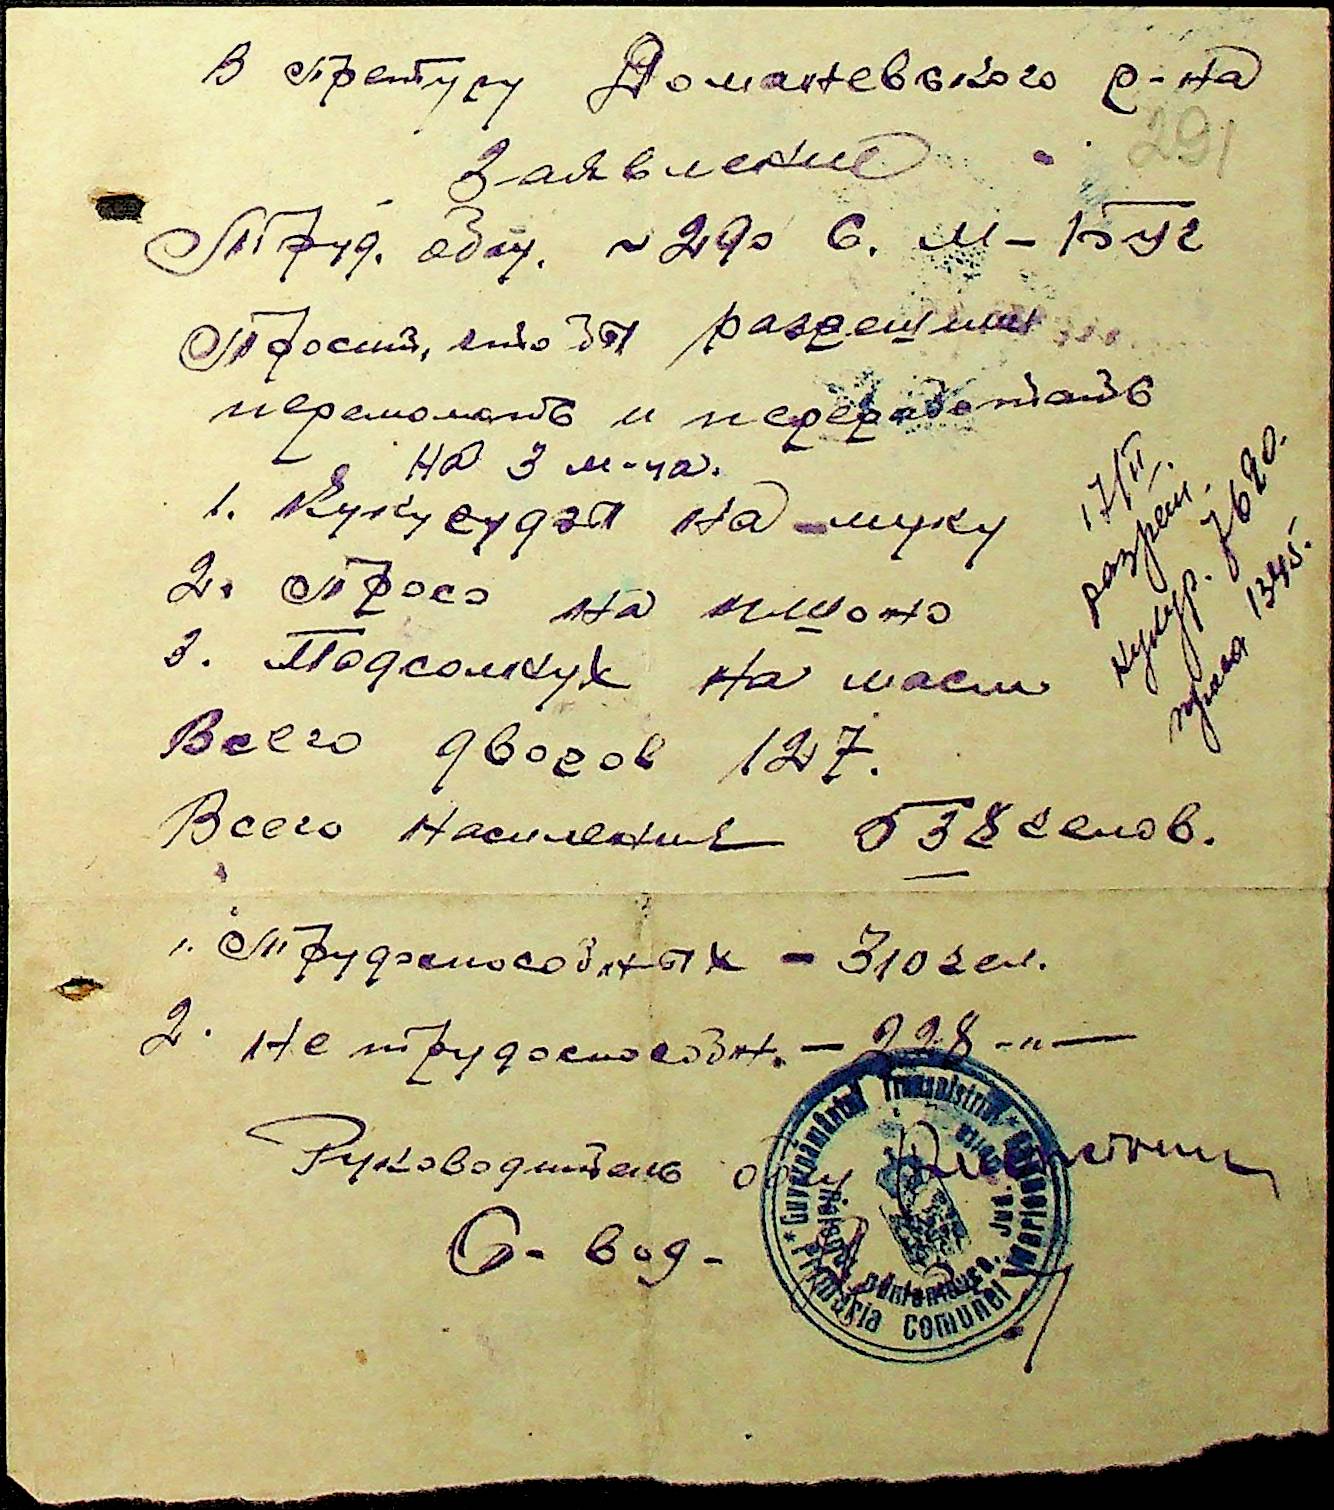 В Претуру Доманевского р-на
291
Заявление
Труд. общ. №290 с. М-Буг
Просит, чтобы разрешили
перемолоть и переработать
на 3 м-ца.
1. Кукурудзы на муку
2. Просо на пшоно
3. Подсолнух на масло
Всего дворов 127.
Всего населения 538 челов.
1. Трудоспособных - 310 чел.
2. Не трудоспособн. - 228 -"-
Руководитель общ
С-вод-
17/II
разреш.
кукур. 7620.
проса 1345.
Guvernământul Transnistriei
Primăria Comunei